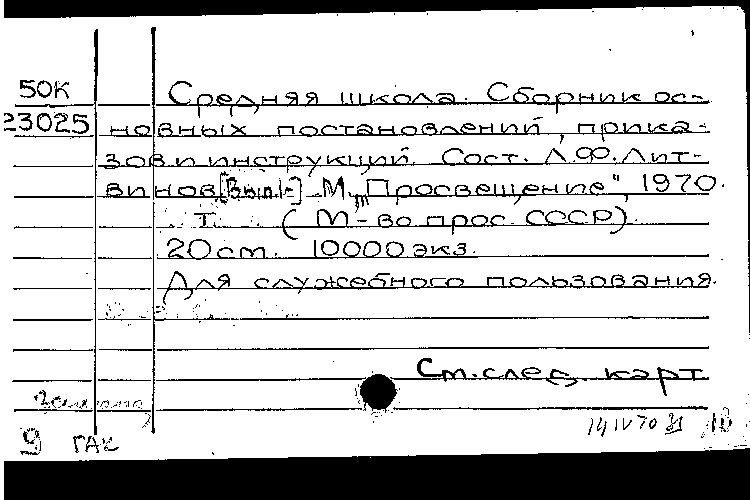 50К Средняя школа. Сборник ос-
23025 новных постановлений, прика-
зов и инструкций. Сост. Л.Ф. Лит-
винов [Вып. 1-] М., "Просвещение", 1970.
т. (М-во прос. СССР).
20 см. 10000 экз.
Для служебного пользования.
См. след. карт
9 ГАК
14 IV 70